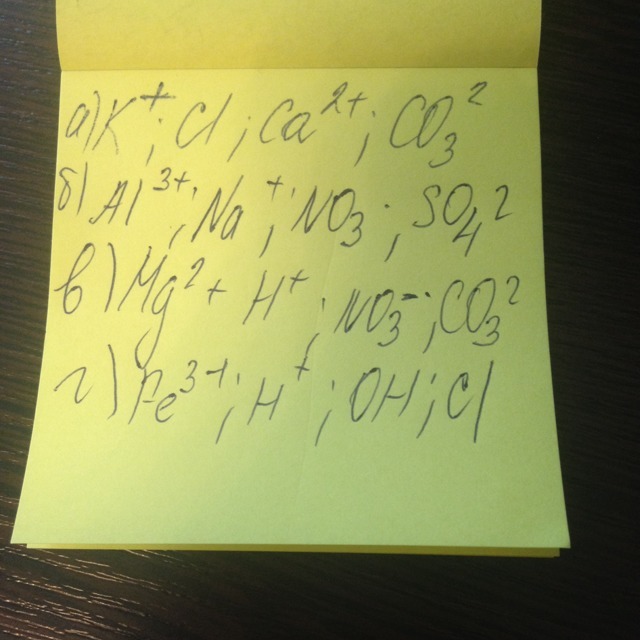 а) K⁺; Cl; Ca²⁺; CO₃²
б) Al³⁺; Na⁺; NO₃; SO₄²
в) Mg²⁺ H⁺; NO₃⁻; CO₃²
г) Fe³⁺; H⁺; OH; Cl